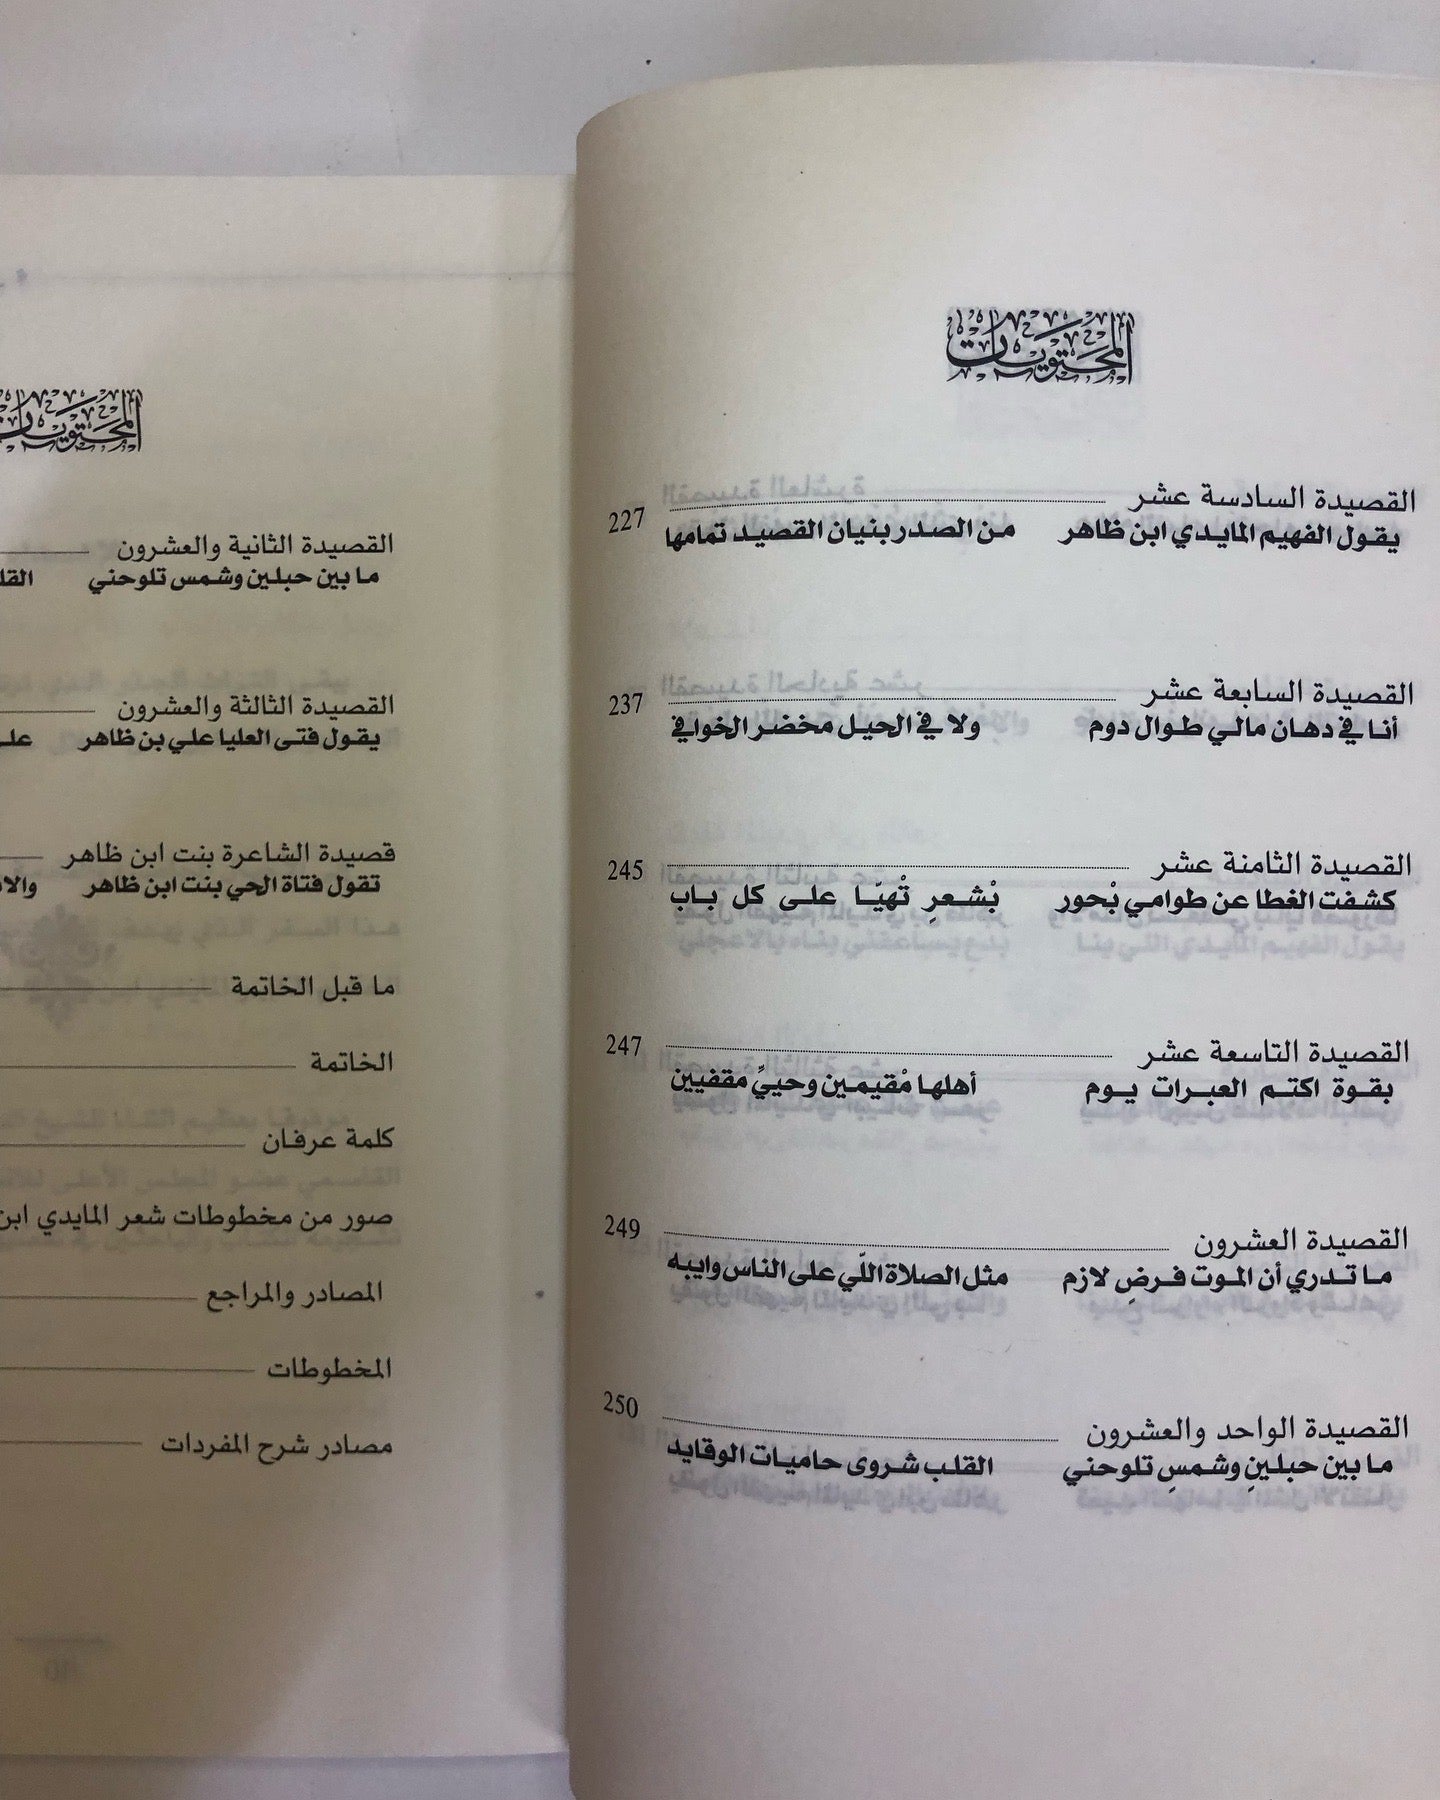 المحتويات
القصيدة السادسة عشر 227
يقول الفهيم المايدي ابن ظاهر من الصدر بنيان القصيد تمامها
القصيدة السابعة عشر 237
أنا في دهان مالي طوال دوم ولا في الحيل مخضر الخوافي
القصيدة الثامنة عشر 245
كشفت الغطا عن طوامي بْحور بْشعرِ تْهيّا على كل باب
القصيدة التاسعة عشر 247
بقوة اكتم العبرات يوم أهلها مْقيمين وحييً مقفيين
القصيدة العشرون 249
ما تدري أن الموت فرضِ لازم مثل الصلاة اللّي على الناس وايبه
القصيدة الواحد والعشرون 250
ما بين حبلينِ وشمسِ تلوحني القلب شروى حاميات الوقايد
المحتويات
القصيدة الثانية والعشرون
ما بين حبلين وشمس تلوحني
القصيدة الثالثة والعشرون
يقول فتى العليا علي بن ظاهر
قصيدة الشاعرة بنت ابن ظاهر
تقول فتاة الحي بنت ابن ظاهر
ما قبل الخاتمة
الخاتمة
كلمة عرفان
صور من مخطوطات شعر المايدي ابن
المصادر والمراجع
المخطوطات
مصادر شرح المفردات